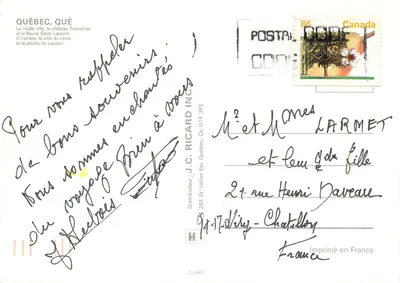 QUÉBEC, QUÉ
La vieille ville, le château Frontenac
et le fleuve Saint-Laurent
À l'arrière, la ville de Lévis
et la pointe de Lauzon
Pour vous rappeler
de bons souvenirs.
Nous sommes enchantés !
du voyage Bien à vous
J Herbois
Distributeur J.C. RICARD INC.
H
CJ
86 Canada
POSTAL CODE
CODE
Mr et Mmes LARMET
et leur gde fille
21 rue Henri Daveau
Chatillon
France
Imprimé en France